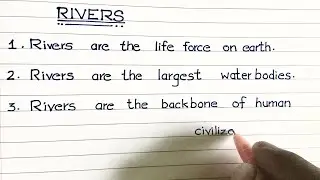 RIVERS
1. Rivers are the life force on earth.
2. Rivers are the largest water bodies.
3. Rivers are the backbone of human
civiliza